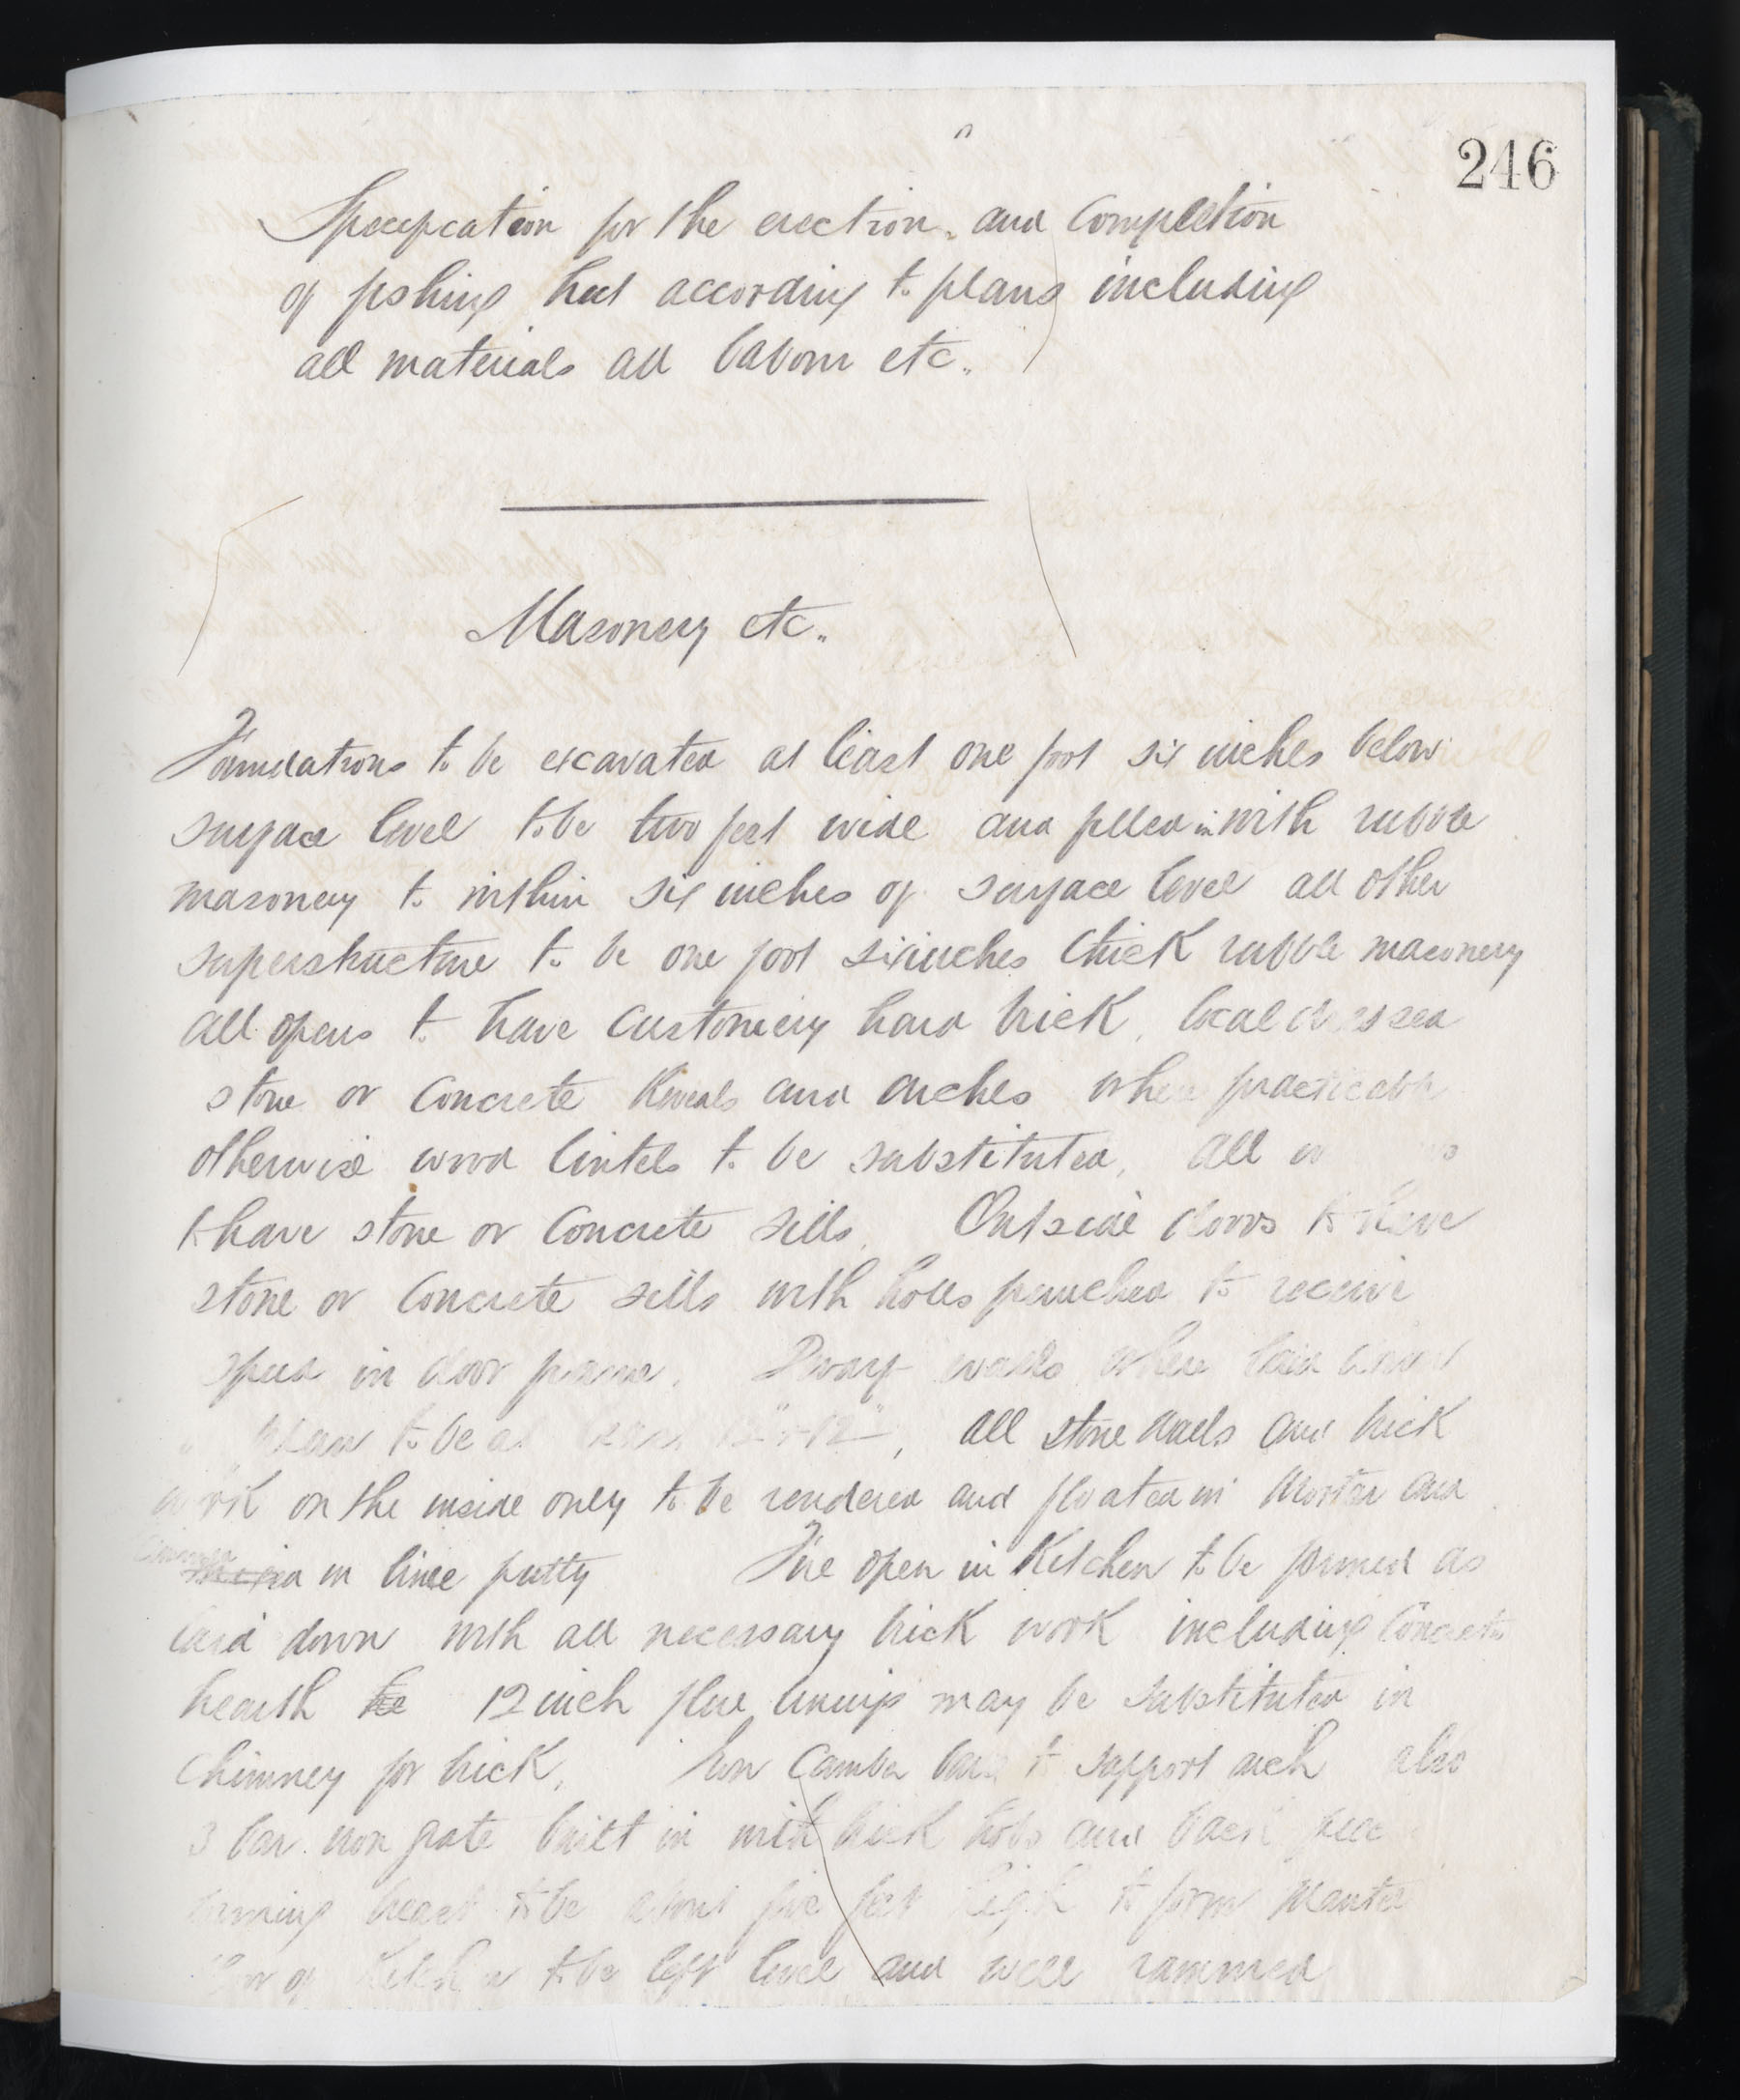 246
Specification for the erection and Completion
of fishing hut according to plans including
all materials all labour etc.
Masonery etc.
Foundations to be excavated at least one foot six inches below
surface level to be two feet wide and filled in with rubble
masonery to within six inches of surface level all other
superstructure to be one foot six inches thick rubble masonery
all opens to have Customery hard brick, local dressed
stone or Concrete Reveals and arches where practicable
otherwise wood lintels to be substituted, All
to have stone or Concrete sills. Outside doors to have
stone or Concrete sills with holes punched to receive
spud in door frame. Dwarf walls where laid down
plan to be at least 12" x 12", all stone walls and brick
work on the inside only to be rendered and floated in Mortar and
in lime putty Fire open in Kitchen to be formed as
laid down with all necessary brick work including Concrete
hearth he 12 inch flue linings may be substituted in
Chimney for brick, Iron Camber bar to support arch also
3 bar iron grate built in with brick hobs and back
breast to be about five feet high to form Mantel
of Kitchen to be left level and well rammed